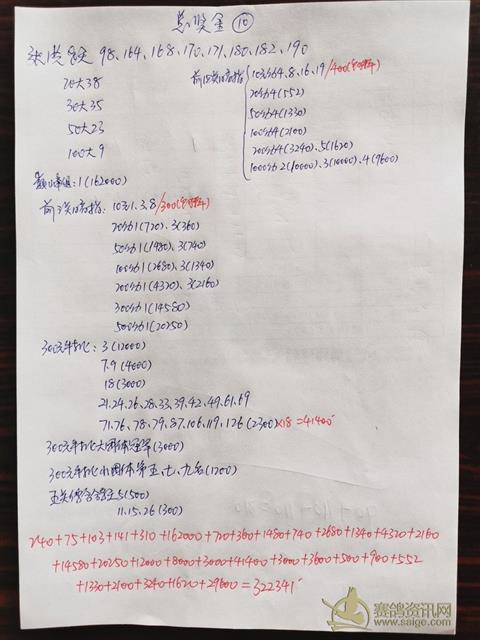 总奖金 ⑩
98、164、168、170、171、180、182、190
20大38
30大35
50大23
100大9
10元组4.8、16、19/400(
20组4(552)
50组4(1330)
100组4(2100)
200组4(3240)、5(1620)
1000组2(10000)、3(10000)、4(9600)
1(162000)
10元1.3.8/300(
20组1(720)、3(360)
50组1(1480)、3(740)
100组1(2680)、3(1340)
200组1(4320)、3(2160)
300组1(14580)
500组1(20250)
300元 3(12000)
7.9(4000)
18(3000)
21.24.26、28.33.39.42、49.61.69
71.76、78、79.87.106.119、126(2300)×18=41400
300元 大团体冠军(3000)
300元 小团体第五、七、九名(1200)
5(500)
11.15.26(300)
240+75+103+141+310+162000+720+360+1480+740+2680+1340+4320+2160
+14580+20250+12000+8000+3000+41400+3000+3600+500+900+552
+1330+2100+3240+1620+29600=322341
赛鸽资讯网
www.saige.com